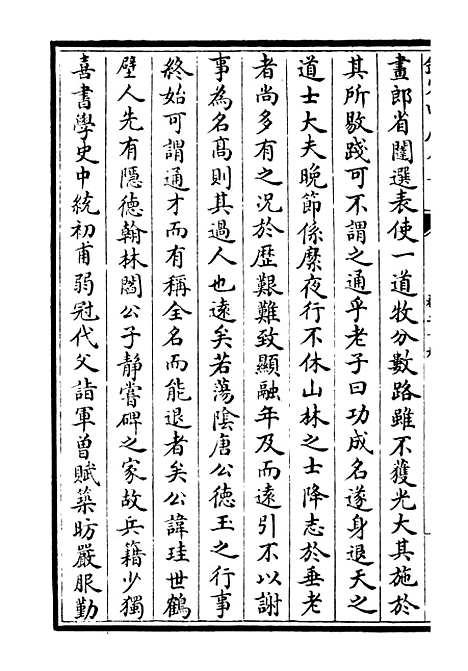 畫郎省閨選表使一道牧分數路雖不獲光大其施於
其所敭踐可不謂之通乎老子曰功成名遂身退天之
道士大夫晚節係縻夜行不休山林之士降志於垂老
者尚多有之況於歴艱難致顯融年及而遠引不以謝
事為名髙則其過人也遠矣若蕩隂唐公德玉之行事
終始可謂通才而有稱全名而能退者矣公諱珪世鶴
壁人先有隠德翰林閻公子靜嘗碑之家故兵籍少獨
喜書學史中統初甫弱冠代父詣軍曽賦築昉嚴服勤